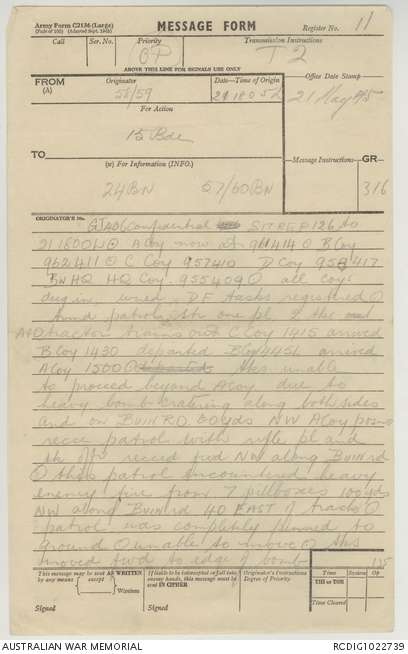 Army Form C2136 (Large)
MESSAGE FORM
Register No. 11
Call
Ser. No.
Priority
Transmission Instructions
OP
T2
ABOVE THIS LINE FOR SIGNALS USE ONLY
FROM
(A)
Originator
Date—Time of Origin
Office Date Stamp
58/59
211805L
21 May 45
For Action
15 Bde
TO
(w) For Information (INFO.)
Message Instructions
GR
24 BN 57/60 BN
316
ORIGINATOR'S No.
Confidential SITREP 126 to
211800L O A Coy now 961414 O B Coy
952411 O C Coy 957410 D Coy 417
BN HQ HQ Coy 955409 O all coys
dug in wired DF tasks registered O
patrol one pl
tractor trains out C Coy 1415 arrived
B Coy 1430 departed B Coy 1445 arrived
A Coy 1500 O tks unable
to proceed beyond A Coy due to
heavy bomb cratering along both sides
and on BUIN RD 60 yds NW A Coy posn O
recce patrol with rifle pl and
tk offr recced fwd NW along BUIN rd
O this patrol encountered heavy
enemy fire from 7 pillboxes 100 yds
NW along BUIN rd 40 EAST of track O
patrol was completely pinned to
ground O unable to move O tks
moved fwd to edge of bomb
135
This message may be sent AS WRITTEN
by any means
except
Wireless
If liable to be intercepted or fall into
enemy hands, this message must be
sent IN CIPHER
Originator's Instructions
Degree of Priority
Time
System
Op
THI or TOR
Time Cleared
Signed
Signed
AUSTRALIAN WAR MEMORIAL
RCDIG1022739